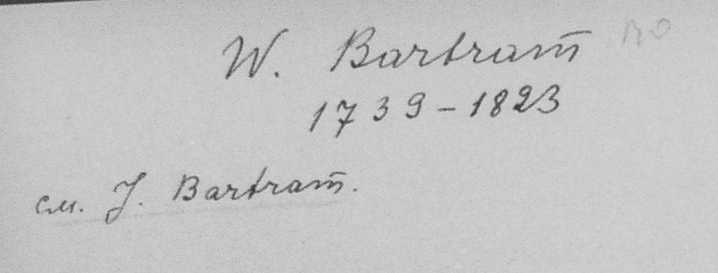 W. Bartram
1739-1823
см. J. Bartram.